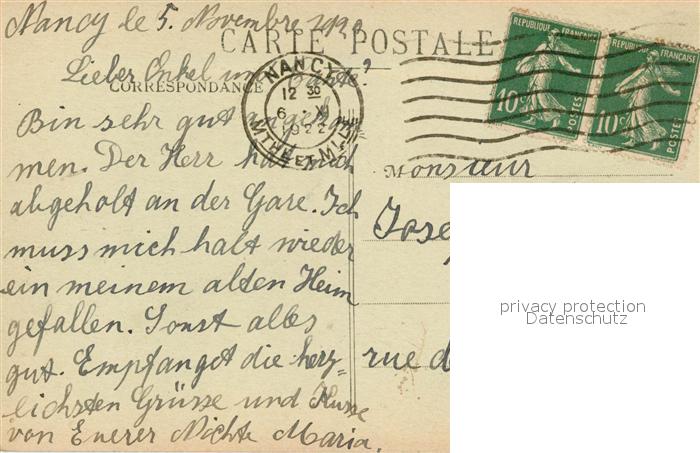 Nancy le 5. Novembre
CARTE POSTALE
Lieber Onkel und Tante!
CORRESPONDANCE
Bin sehr gut angekom-
men. Der Herr hat mich
abgeholt an der Gare. Ich
muss mich halt wieder
ein meinem alten Heim
gefallen. Sonst alles
gut. Empfanget die herz-
lichsten Grüsse und Küsse
von Euerer Nichte Maria.
NANCY
12 30
6 XI
1922
MTHE ET MLLE
REPUBLIQUE FRANÇAISE
10c POSTES
REPUBLIQUE FRANÇAISE
10c POSTES
Monsieur
Jose
rue d
privacy protection
Datenschutz